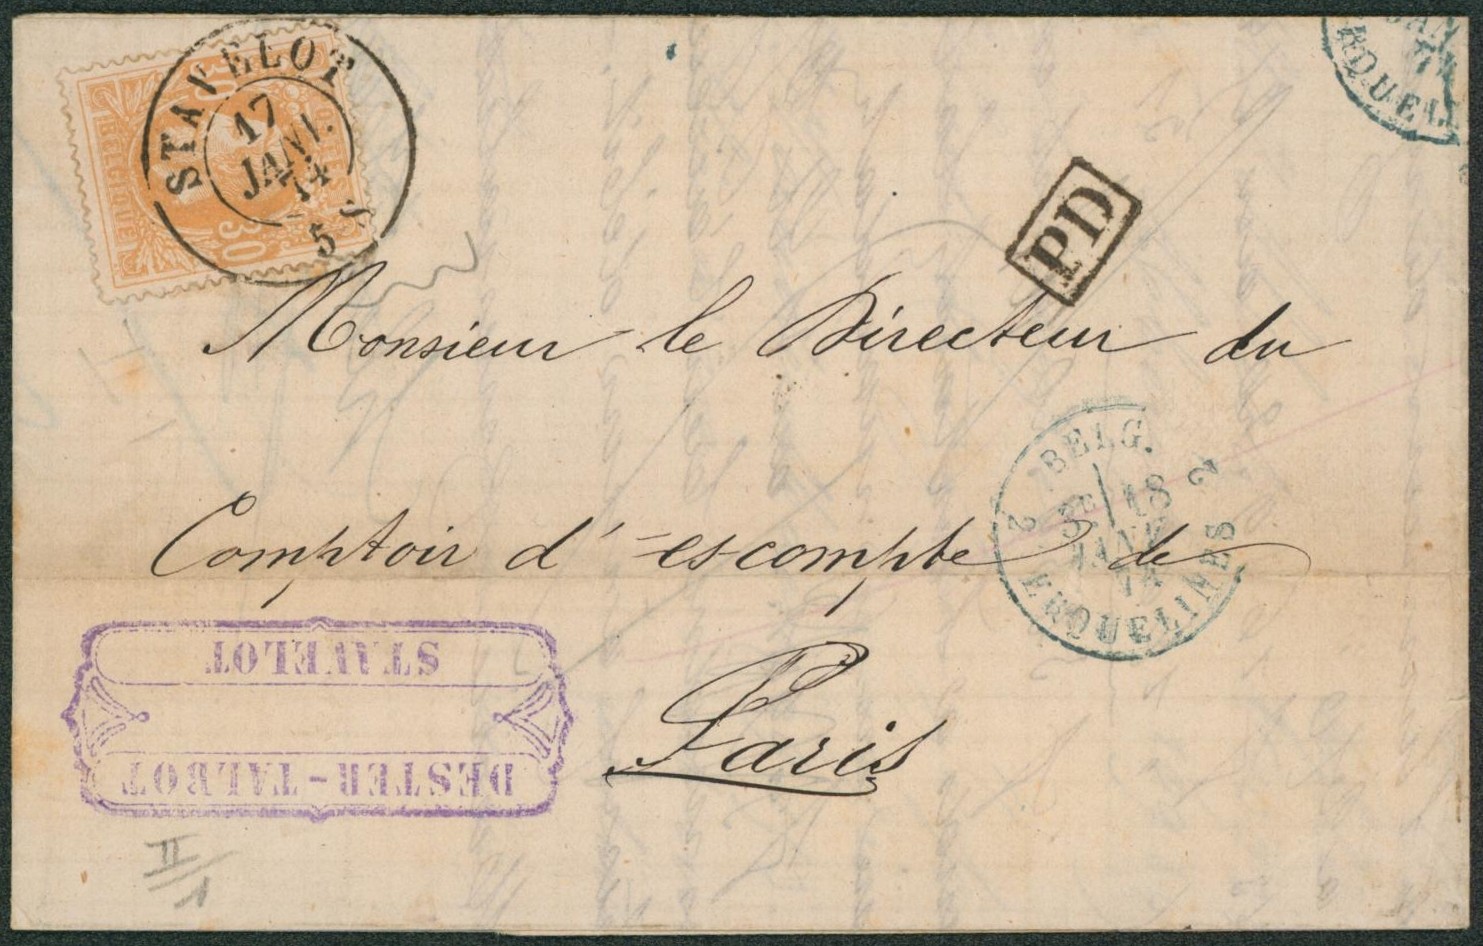 STAVELOT
17
JANV.
74
5 S
BELGIQUE
30
PD
Monsieur le Directeur du
BELG.
2 18 2
JANV
74
ERQUELINES
Comptoir d'escompte de
Paris
STAVELOT
DESTER-TALBOT
II/1